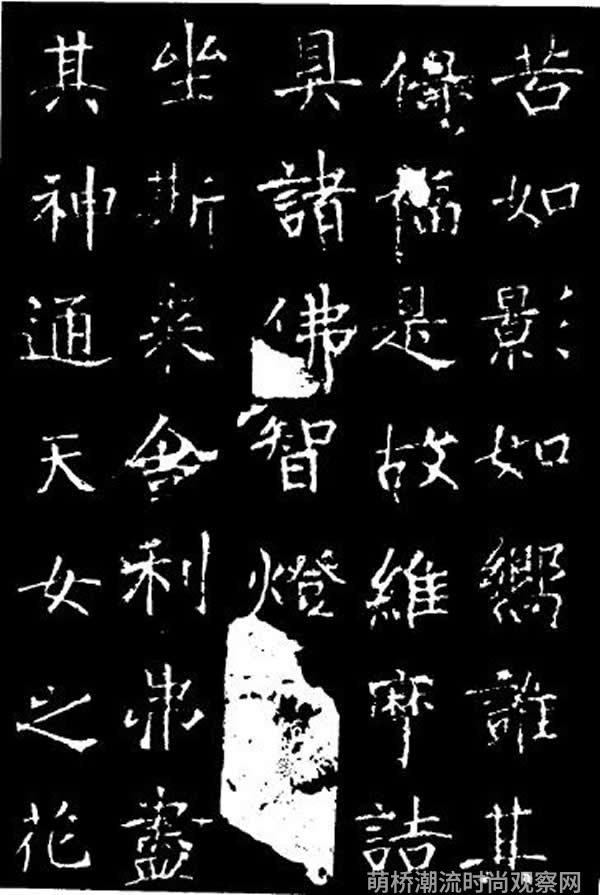 苦如影如嚮誰其
福是故維摩詰
具諸佛智燈
坐斯來舍利弗盡
其神通天女之花
萌桥潮流时尚观察网